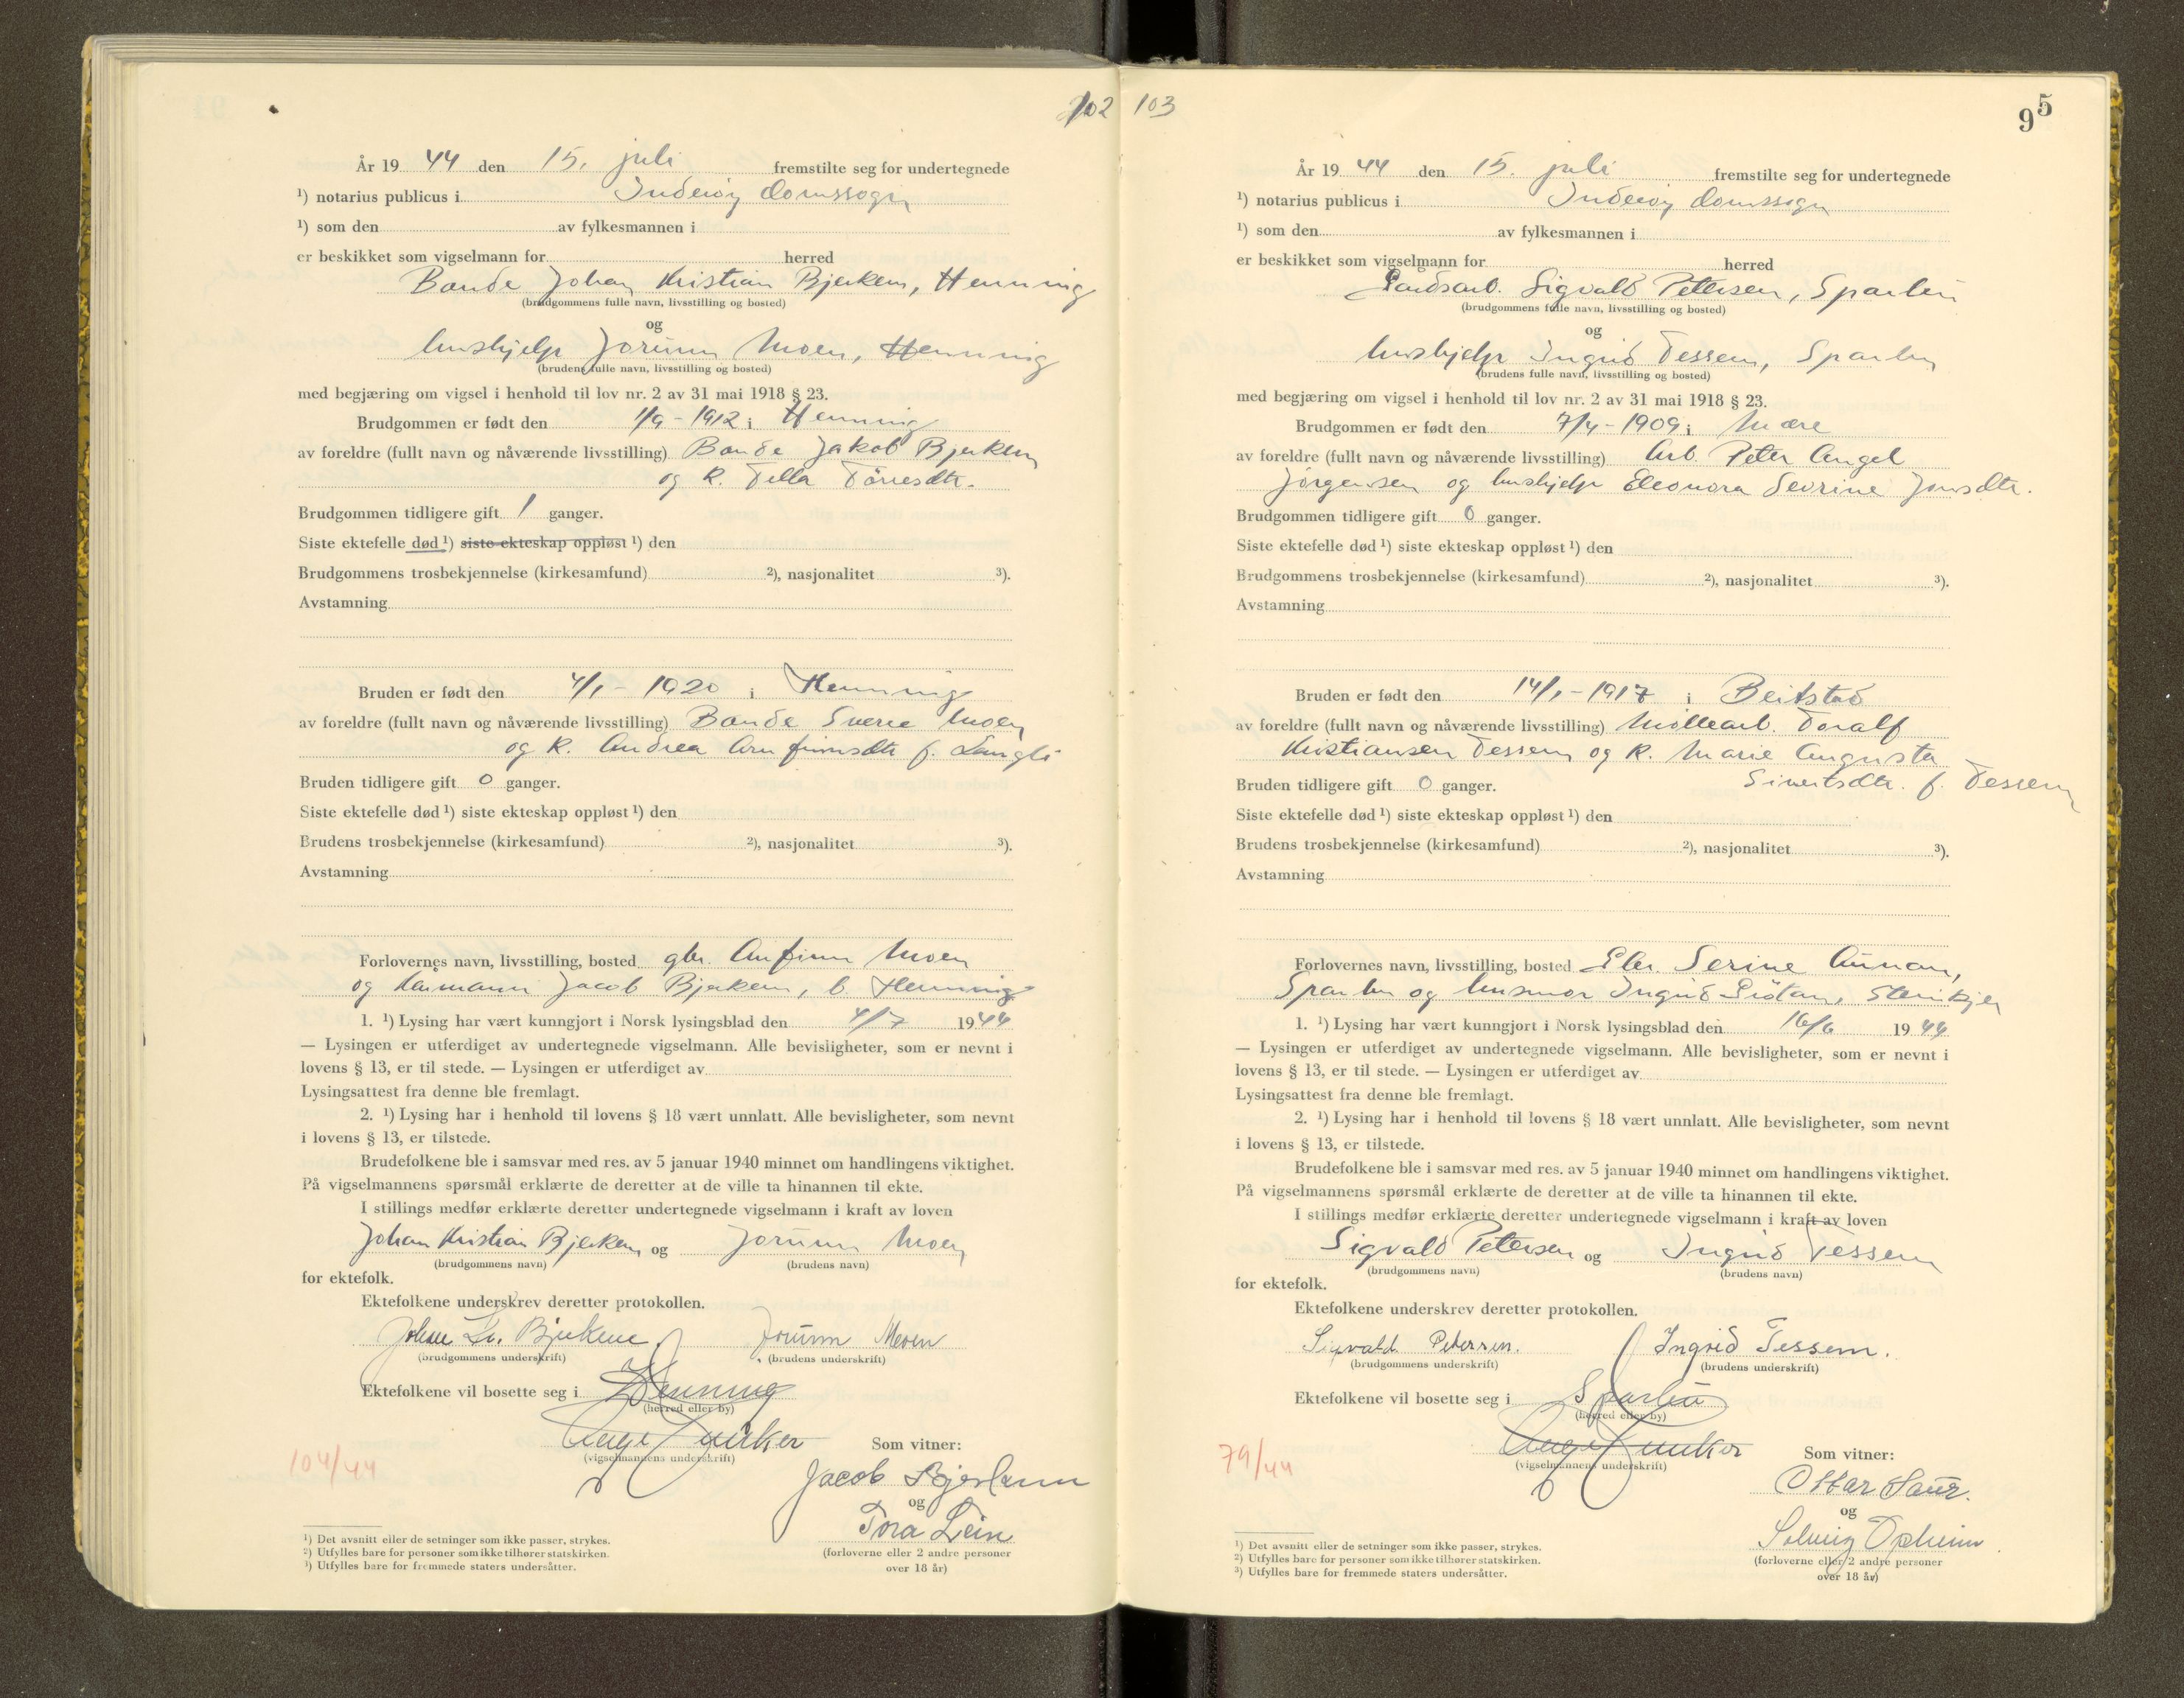 102
År 19 44 den 15. juli fremstilte seg for undertegnede
¹) notarius publicus i Inderøy domssogn
¹) som den av fylkesmannen i
er beskikket som vigselmann for herred
Bonde Johan Kristian Bjerkem, Henning
(brudgommens fulle navn, livsstilling og bosted)
og
hushjelp Jorunn Moen, Henning
(brudens fulle navn, livsstilling og bosted)
med begjæring om vigsel i henhold til lov nr. 2 av 31 mai 1918 § 23.
Brudgommen er født den 1/9 - 1912 i Henning
av foreldre (fullt navn og nåværende livsstilling) Bonde Jakob Bjerkem
og k. Tella Tørresdtr.
Brudgommen tidligere gift 1 ganger.
Siste ektefelle død ¹) siste ekteskap oppløst ¹) den
Brudgommens trosbekjennelse (kirkesamfund) ²), nasjonalitet ³).
Avstamning
Bruden er født den 4/1 - 1920 i Henning
av foreldre (fullt navn og nåværende livsstilling) Bonde Sverre Moen
og k. Andrea Arnfinnsdtr f. Langli
Bruden tidligere gift 0 ganger.
Siste ektefelle død ¹) siste ekteskap oppløst ¹) den
Brudens trosbekjennelse (kirkesamfund) ²), nasjonalitet ³).
Avstamning
Forlovernes navn, livsstilling, bosted gbr. Arnfinn Moen
og Jacob Bjerkem, b. Henning
1. ¹) Lysing har vært kunngjort i Norsk lysingsblad den 4/7 1944
— Lysingen er utferdiget av undertegnede vigselmann. Alle bevisligheter, som er nevnt i
lovens § 13, er til stede. — Lysingen er utferdiget av
Lysingsattest fra denne ble fremlagt.
2. ¹) Lysing har i henhold til lovens § 18 vært unnlatt. Alle bevisligheter, som nevnt
i lovens § 13, er tilstede.
Brudefolkene ble i samsvar med res. av 5 januar 1940 minnet om handlingens viktighet.
På vigselmannens spørsmål erklærte de deretter at de ville ta hinannen til ekte.
I stillings medfør erklærte deretter undertegnede vigselmann i kraft av loven
Johan Kristian Bjerkem og Jorunn Moen
(brudgommens navn) (brudens navn)
for ektefolk.
Ektefolkene underskrev deretter protokollen.
Johan Kr. Bjerkem Jorunn Moen
(brudgommens underskrift) (brudens underskrift)
Ektefolkene vil bosette seg i Henning
(herred eller by)
Aage Junker Som vitner:
(vigselmannens underskrift)
104/44
Jacob Bjerkem
og
Tora Lein
(forloverne eller 2 andre personer
over 18 år)
¹) Det avsnitt eller de setninger som ikke passer, strykes.
²) Utfylles bare for personer som ikke tilhører statskirken.
³) Utfylles bare for fremmede staters undersåtter.
103
95
År 19 44 den 15. juli fremstilte seg for undertegnede
¹) notarius publicus i Inderøy domssogn
¹) som den av fylkesmannen i
er beskikket som vigselmann for herred
Gardsarb. Sigvald Petersen, Sparbu
(brudgommens fulle navn, livsstilling og bosted)
og
hushjelp Ingrid Tessem, Sparbu
(brudens fulle navn, livsstilling og bosted)
med begjæring om vigsel i henhold til lov nr. 2 av 31 mai 1918 § 23.
Brudgommen er født den 7/4 - 1909 i Mære
av foreldre (fullt navn og nåværende livsstilling) Arb. Peter Angel
Jørgensen og hushjelp Eleonora Sevrine Jonsdtr.
Brudgommen tidligere gift 0 ganger.
Siste ektefelle død ¹) siste ekteskap oppløst ¹) den
Brudgommens trosbekjennelse (kirkesamfund) ²), nasjonalitet ³).
Avstamning
Bruden er født den 14/1 - 1917 i Beitstad
av foreldre (fullt navn og nåværende livsstilling) Møllearb. Toralf
Kristiansen Tessem og k. Marie Augusta
Bruden tidligere gift 0 ganger. Sivertsdtr. f. Tessem
Siste ektefelle død ¹) siste ekteskap oppløst ¹) den
Brudens trosbekjennelse (kirkesamfund) ²), nasjonalitet ³).
Avstamning
Forlovernes navn, livsstilling, bosted Gbr. Serine Aunan,
Sparbu og husmor Ingrid Steinkjer
1. ¹) Lysing har vært kunngjort i Norsk lysingsblad den 16/6 1944
— Lysingen er utferdiget av undertegnede vigselmann. Alle bevisligheter, som er nevnt i
lovens § 13, er til stede. — Lysingen er utferdiget av
Lysingsattest fra denne ble fremlagt.
2. ¹) Lysing har i henhold til lovens § 18 vært unnlatt. Alle bevisligheter, som nevnt
i lovens § 13, er tilstede.
Brudefolkene ble i samsvar med res. av 5 januar 1940 minnet om handlingens viktighet.
På vigselmannens spørsmål erklærte de deretter at de ville ta hinannen til ekte.
I stillings medfør erklærte deretter undertegnede vigselmann i kraft av loven
Sigvald Petersen og Ingrid Tessem
(brudgommens navn) (brudens navn)
for ektefolk.
Ektefolkene underskrev deretter protokollen.
Sigvald Petersen. Ingrid Tessem.
(brudgommens underskrift) (brudens underskrift)
Ektefolkene vil bosette seg i Sparbu
(herred eller by)
Aage Junker Som vitner:
(vigselmannens underskrift)
79/44
Ottar Saur.
og
Solveig Opheim
(forloverne eller 2 andre personer
over 18 år)
¹) Det avsnitt eller de setninger som ikke passer, strykes.
²) Utfylles bare for personer som ikke tilhører statskirken.
³) Utfylles bare for fremmede staters undersåtter.